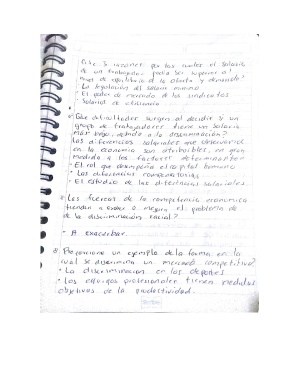 Cite 3 razones por las cuales el salario
de un trabajador podría ser superior al
nivel de equilibrio d la oferta y demanda?
- La legislación del salario mínimo
- El poder de mercado de los sindicatos
salarial de eficiencia
Que dificultades surgen al decidir si un
grupo de trabajadores tiene un salario
más bajo debido a la discriminación?
Las diferencias salariales que observamos
en la economía son atribuibles, en gran
medida a los factores determinantes
• El rol que desempeña el capital humano
• Las diferencias compensatorias
• El estudio de las diferencias salariales
Las fuerzas de la competencia económica
tienden a exacerbar o mejora el problema de
de la discriminación racial?
• A exacerbar.
Proporcione un ejemplo de la forma en la
cual se discrimina un mercado competitivo?
• La discriminación en los deportes
• Los equipos profesionales tienen medidas
objetivas de la productividad.